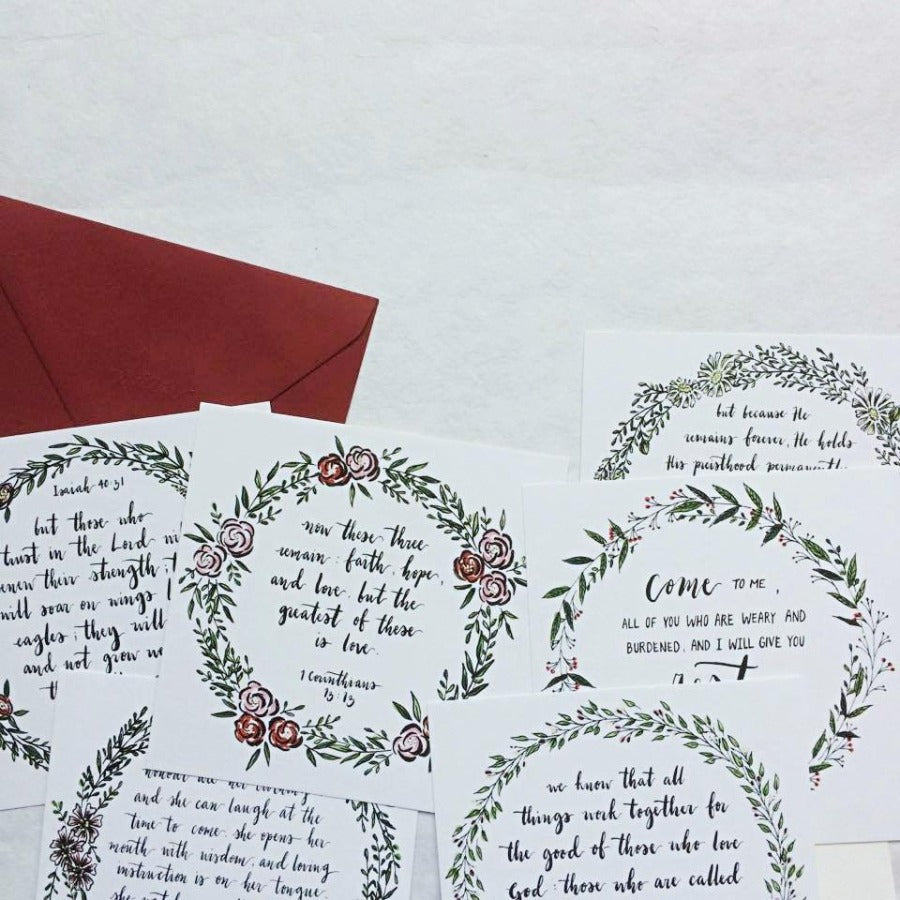 Isaiah 40:31
but those who
trust in the Lord
their strength; t
will soar on wings l
eagles; they will
and not grow w
now these three
remain: faith, hope,
and love. but the
greatest of these
is love.
1 Corinthians
13:13
but because He
remains forever, He holds
His priesthood permanently
Come TO ME,
ALL OF YOU WHO ARE WEARY AND
BURDENED, AND I WILL GIVE YOU
rest
and she can laugh at the
time to come. she opens her
mouth with wisdom, and loving
instruction is on her tongue.
we know that all
things work together for
the good of those who love
God: those who are called